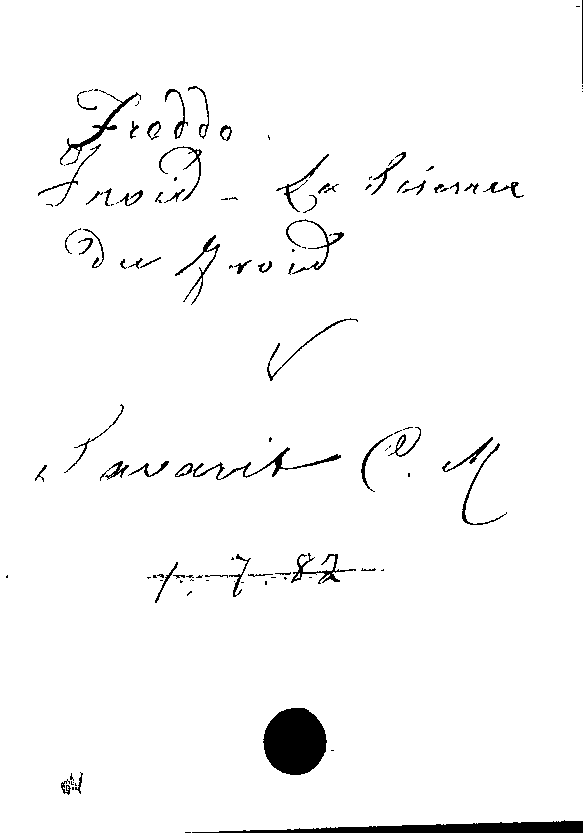 Freddo
Froid - La Science
du Froid
Savarit C. M
1. 7. 82